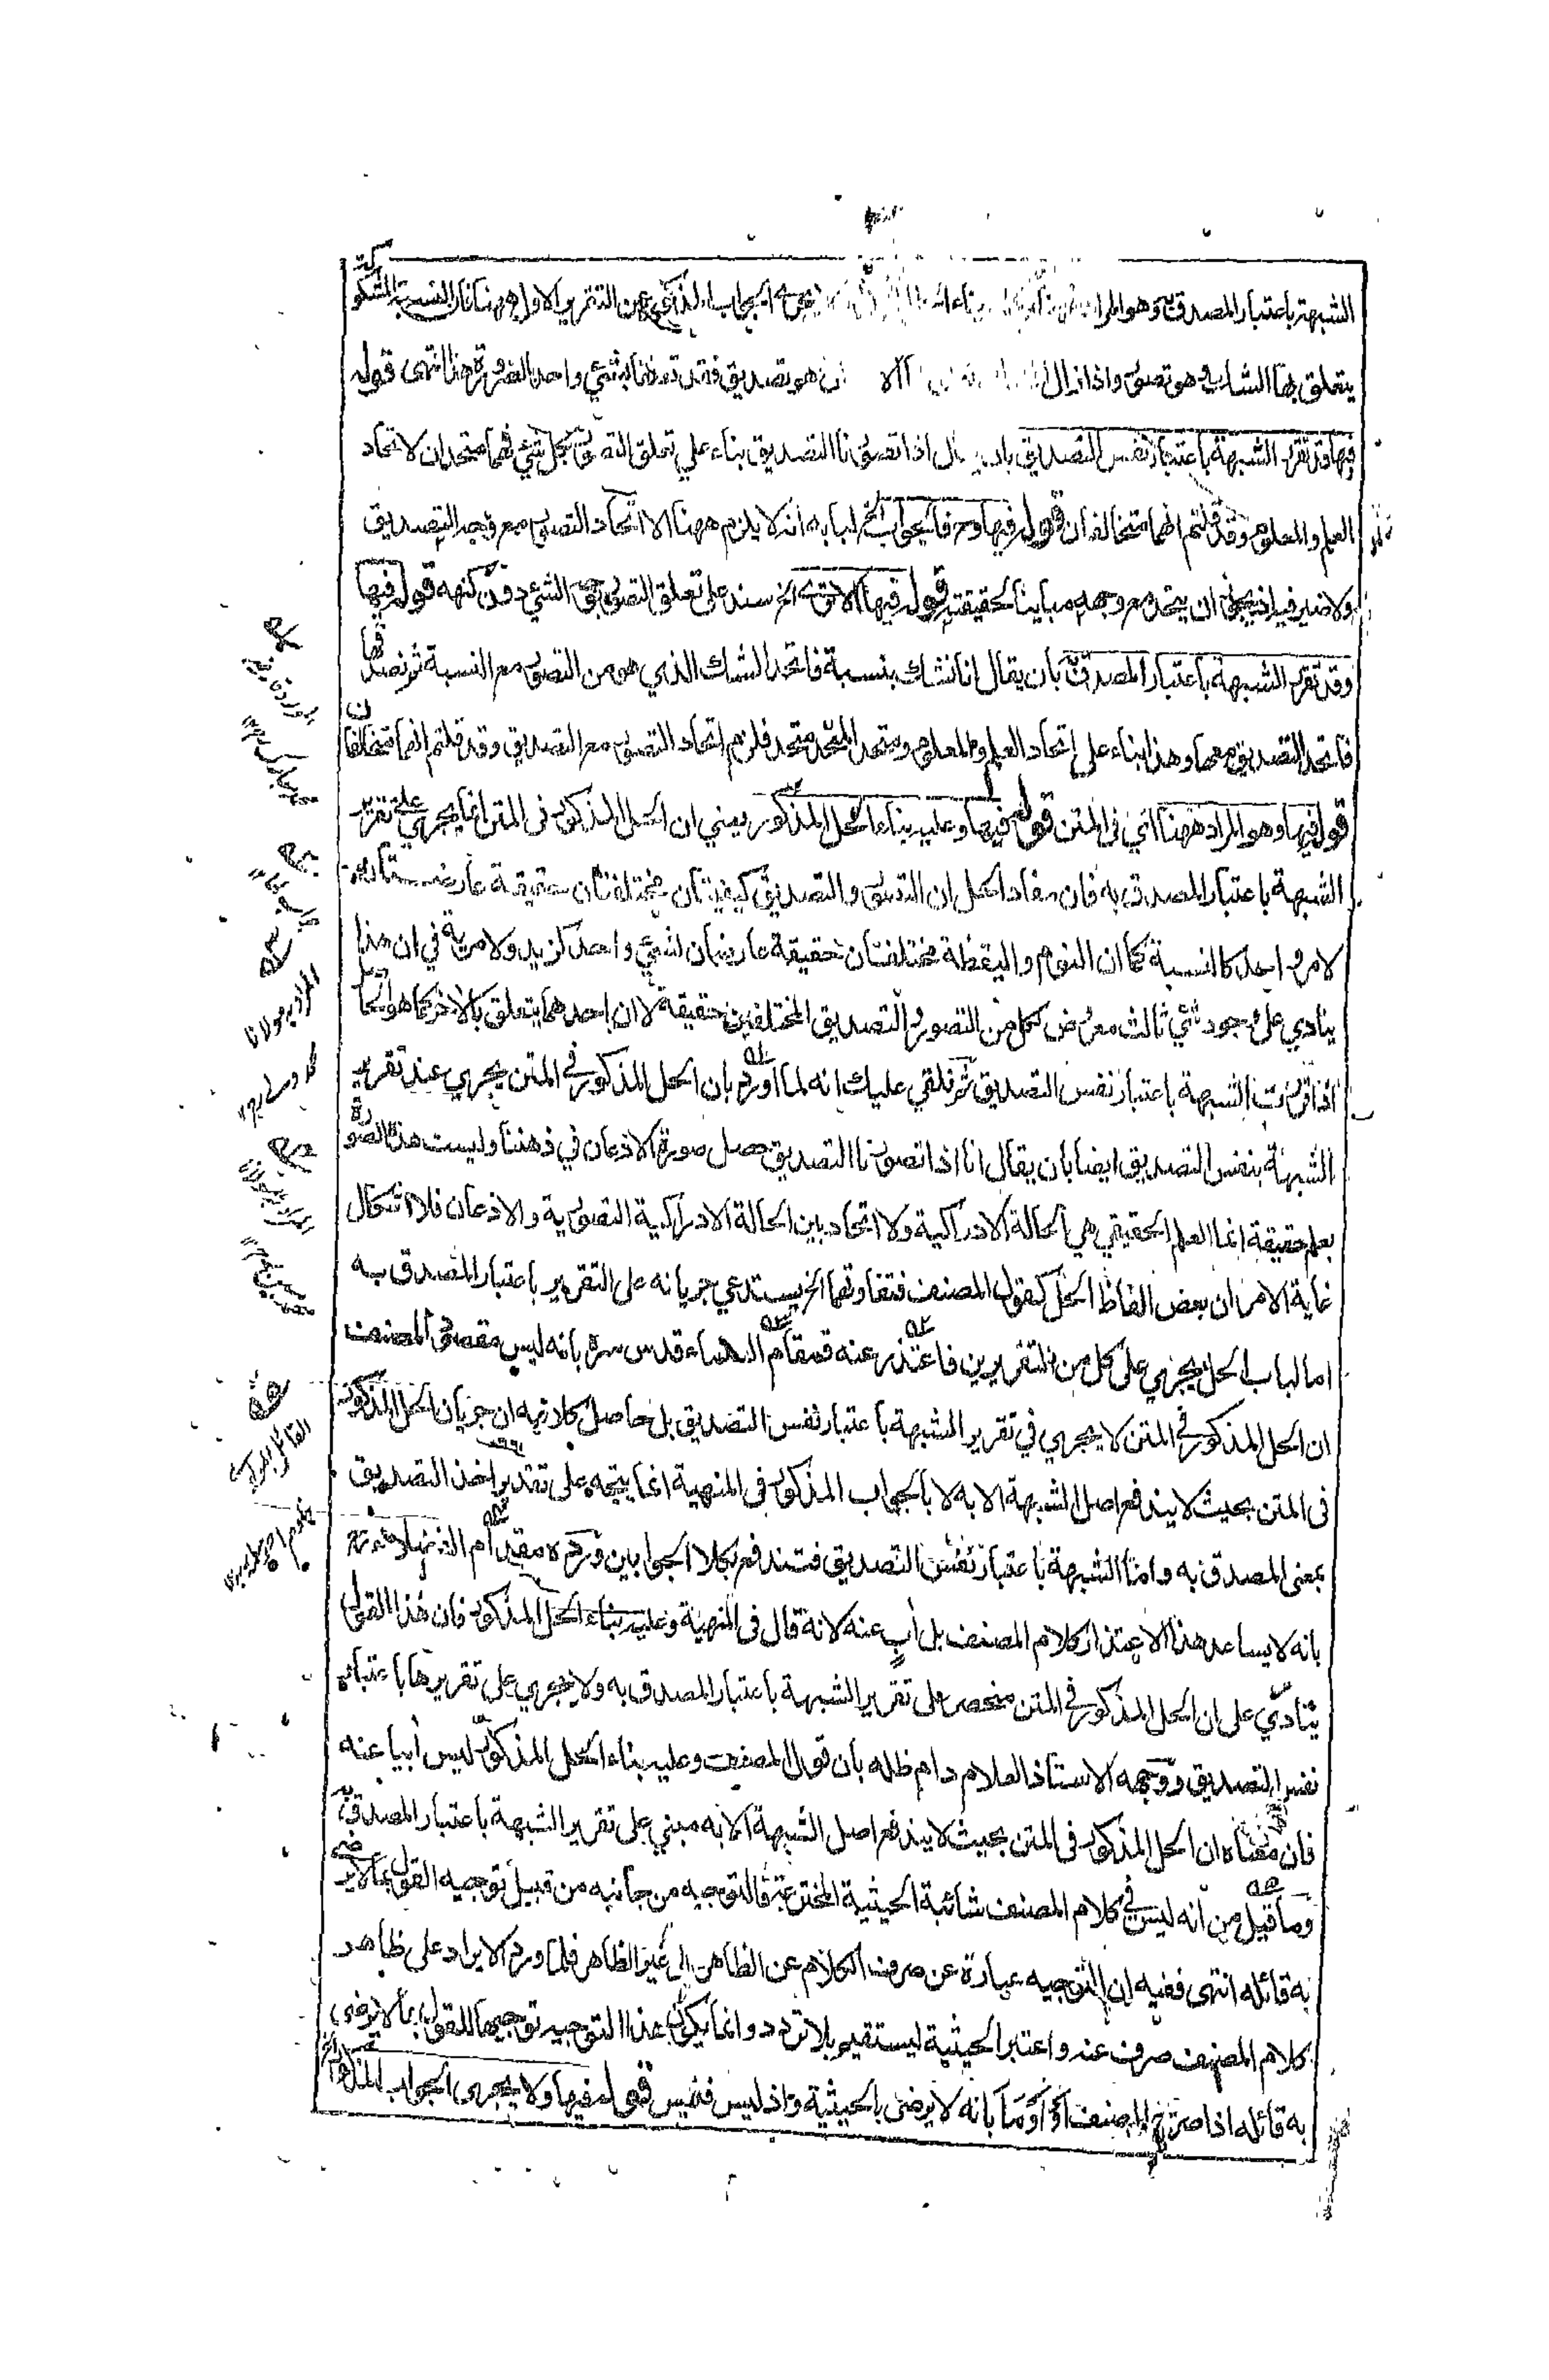 الشبهة باعتبار المصدق به وهو المراد الجواب الذي عن التقرير الاول ههنا فان النسبة المشكوكة
يتعلق بها الشك وهو تصور واذا زال هو تصديق فقد تعلقا بشئ واحد بالضرورة هذا انتهى قوله
فيها وقد تقرر الشبهة باعتبار نفس التصديق بان يقال اذا تصورنا التصديق بناء على تعلق التصور بكل شئ فهما متحدان لاتحاد
العلم والمعلوم وقد قلتم انهما متخالفان قوله فيها وح فالجواب الخ لبابه انه لا يلزم ههنا الا اتحاد التصور مع وجه التصديق
ولا ضير فيه اذ يجوز ان يتحد مع وجهه مباينا لحقيقته قوله فيها الا ترى الخ سند على تعلق التصور بوجه الشئ دون كنهه قوله فيها
وقد تقرر الشبهة باعتبار المصدق به بان يقال انا نشك بنسبة فاتحد الشك الذي هو من التصور مع النسبة ثم نصدق بها
فاتحد التصديق معها وهذا بناء على اتحاد العلم والمعلوم ومتحد المتحد متحد فلزم اتحاد التصور مع التصديق وقد قلتم انهما متخالفان
قوله فيها وهو المراد ههنا اي في المتن قوله فيها وعليه بناء الحل المذكور يعني ان الحل المذكور في المتن انما يجري على تقرير
الشبهة باعتبار المصدق به فان مفاد الحل ان التصور والتصديق كيفيتان مختلفتان حقيقة عارضتان
لامر واحد كالنسبة كما ان النوم واليقظة مختلفتان حقيقة عارضان لشئ واحد كزيد ولا مرية في ان هذا
ينادي على وجود شئ ثالث معروض لكل من التصور والتصديق المختلفين حقيقة لا ان احدهما يتعلق بالآخر كما هو الحال
اذا قررت الشبهة باعتبار نفس التصديق ثم نلقي عليك انه لما اورد بان الحل المذكور في المتن يجري عند تقرير
الشبهة بنفس التصديق ايضا بان يقال انا اذا تصورنا التصديق حصل صورة الاذعان في ذهننا وليست هذه الصورة
بعلم حقيقة انما العلم الحقيقي هي الحالة الادراكية ولا اتحاد بين الحالة الادراكية التصورية والاذعان فلا اشكال
غاية الامر ان بعض الفاظ الحل كقول المصنف فتفاوتهما الخ يستدعي جريانه على التقرير باعتبار المصدق به
اما لباب الحل يجري على كل من التقريرين فاعتذر عنه قمقام العلماء قدس سره بانه ليس مقصود المصنف
ان الحل المذكور في المتن لا يجري في تقرير الشبهة باعتبار نفس التصديق بل حاصل كلامه ان جريان الحل المذكور
في المتن بحيث لا يندفع اصل الشبهة الا به لا بالجواب المذكور في المنهية انما يتجه على تقدير اخذ التصديق
بمعنى المصدق به واما الشبهة باعتبار نفس التصديق فتندفع بكلا الجوابين ورده مقدام
بانه لا يساعد هذا الاعتذار كلام المصنف بل آب عنه لانه قال في المنهية وعليه بناء الحل المذكور فان هذا القول
ينادي على ان الحل المذكور في المتن منحصر على تقرير الشبهة باعتبار المصدق به ولا يجري على تقريرها باعتبار
نفس التصديق ووجهه الاستاذ العلام دام ظله بان قول المصنف وعليه بناء الحل المذكور ليس أبيا عنه
فان معناه ان الحل المذكور في المتن بحيث لا يندفع اصل الشبهة الا به مبني على تقرير الشبهة باعتبار المصدق به
وما قيل من انه ليس في كلام المصنف شائبة الحيثية المخترعة فالتوجيه من جانبه من قبيل توجيه القول بما لا يرضى
به قائله انتهى ففيه ان التوجيه عبارة عن صرف الكلام عن الظاهر الى غير الظاهر فلما ورد الايراد على ظاهر
كلام المصنف صرف عنه واعتبر الحيثية ليستقيم بلا تردد وانما يكون هذا التوجيه توجيها للقول بما لا يرضى
به قائله اذا صرح المصنف او اومأ بانه لا يرضى بالحيثية واذ ليس فليس قوله فيها ولا يجري الجواب المذكور
المراد به مولانا